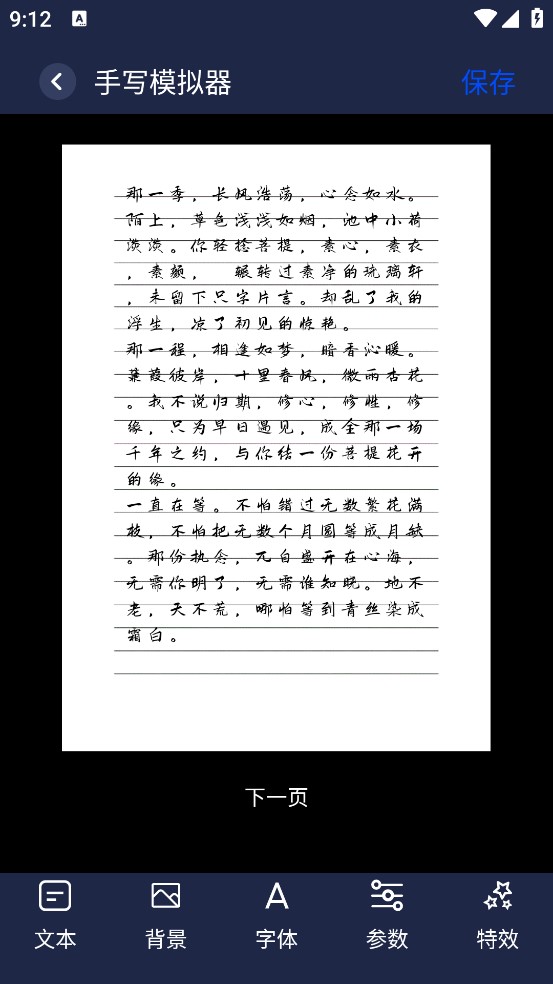 9:12
A
手写模拟器
保存
那一季，长风浩荡，心念如水。
陌上，草色浅浅如烟，池中小荷
淡淡。你轻捻菩提，素心，素衣
，素颜， 辗转过素净的琉璃轩
，未留下只字片言。却乱了我的
浮生，凉了初见的惊艳。
那一程，相逢如梦，暗香沁暖。
蒹葭彼岸，十里春风，微雨杏花
。我不说归期，修心，修性，修
缘，只为早日遇见，成全那一场
千年之约，与你结一份菩提花开
的缘。
一直在等。不怕错过无数繁花满
枝，不怕把无数个月圆等成月缺
。那份执念，兀自盛开在心海，
无需你明了，无需谁知晓。地不
老，天不荒，哪怕等到青丝染成
霜白。
下一页
文本 背景 字体 参数 特效